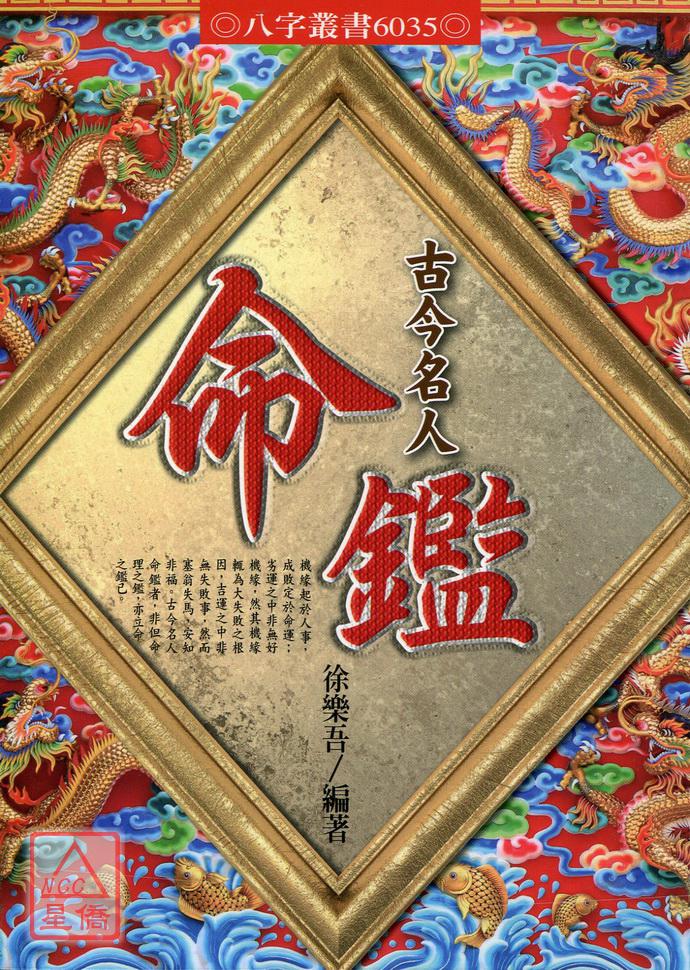 ◎八字叢書6035◎
古今名人
命鑑
機緣起於人事，
成敗定於命運；
劣運之中非無好
機緣，然其機緣
輒為大失敗之根
因，吉運之中非
無失敗事，然而
塞翁失馬，安知
非福。古今名人
命鑑者，非但命
理之鑑，亦立命
之鑑已。
徐樂吾/編著
NCC
星僑